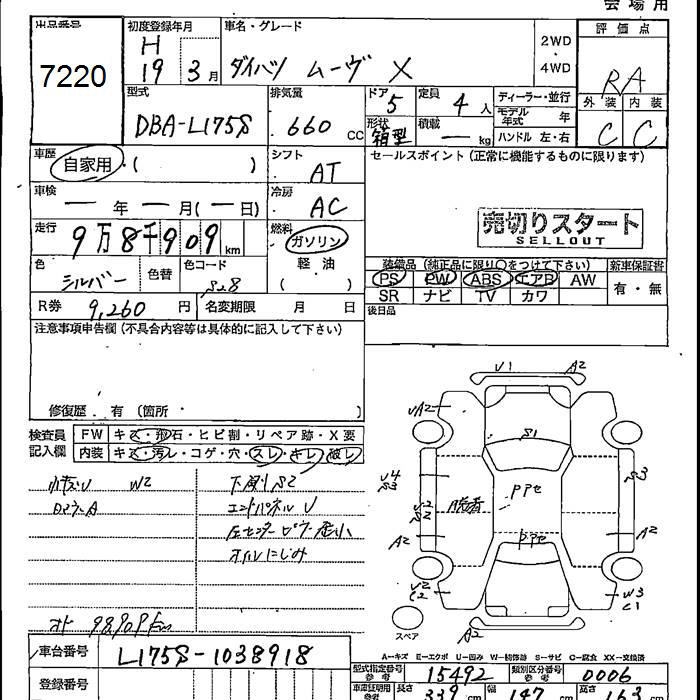 会場用
出品番号 初度登録年月 車名・グレード 評価点
7220
H
19 3月 ダイハツ ムーヴ X 2WD ・ 4WD RA
型式 排気量 ドア 定員 ディーラー・並行 外装 内装
DBA-L175S 660 cc 5 4人 モデル年式 年 C C
形状 積載
箱型 — kg ハンドル 左・右
車歴 シフト セールスポイント (正常に機能するものに限ります)
自家用・( ) AT
車検 冷房
— 年 — 月(— 日) AC
売切りスタート
SELLOUT
走行 燃料
9万8千909km ガソリン
軽・油
( )
色 色替 色コード 装備品 (純正品に限り○をつけて下さい) 新車保証書
シルバー S28 PS PW ABS エアB AW 有・無
SR ナビ TV カワ
R券 9,260円 名変期限 月 日 後日品
注意事項申告欄 (不具合内容等は具体的に記入して下さい)
修復歴・有 (箇所・ )
検査員 FW キズ・飛石・ヒビ割・リペア跡・X要
記入欄 内装 キズ・汚レ・コゲ・穴・スレ・キレ・破レ
W2 下廻りS2
エンドパネルU
オイルにじみ
98909km
U1 A2
UA2
S1
U4
S3
S3
U2
S2
PPセ
A2 A2
PPセ
U2
C2
W3
C1
A2
スペア
A-キズ E-エクボ U-凹み W-補修跡 S-サビ C-腐食 XX-交換済
車台番号 L175S-1038918
型式指定番号 参考 15492 類別区分番号 参考 0006
登録番号 車庫証明用 参考 長さ 339 cm 幅 147 cm 高さ 163 cm